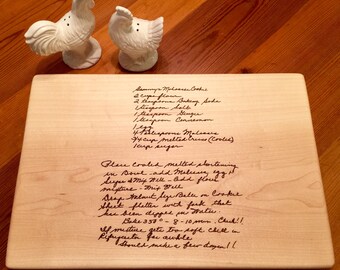 Granny's Molasses Cookie
2 cups flour
2 teaspoons Baking Soda
1 teaspoon Salt
1 teaspoon Ginger
1 teaspoon Cinnamon
1 egg
4 Tablespoons Molasses
3/4 cup melted (Cooled)
1 cup sugar
Place Cooled melted shortening
in Bowl - add Molasses, egg &
Sugar & Mix Well - Add flour
mixture - Mix Well
Drop Walnut size Balls on Cookie
Sheet flatten with fork that
has been dipped in Water
Bake 350° - 8-10 min. Check!!
If mixture gets too soft chill in
Refrigerator for awhile
Should make a few dozen!!